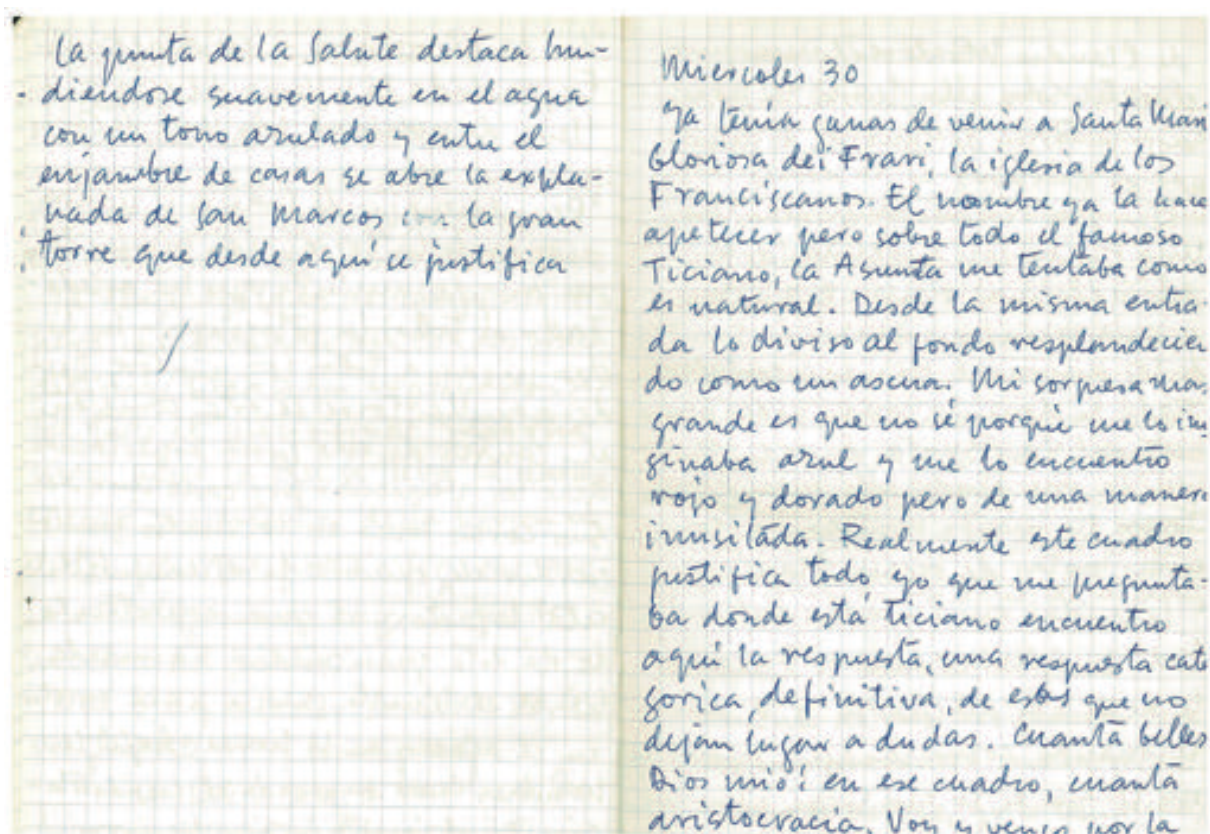 La punta de la Salute destaca hun-
diendose suavemente en el agua
con un tono azulado y entre el
enjambre de casas se abre la expla-
nada de San Marcos con la gran
torre que desde aqui se justifica
Miercoles 30
Ya tenía ganas de venir a Santa Mari
Gloriosa dei Frari, la iglesia de los
Franciscanos. El nombre ya la hace
apetecer pero sobre todo el famoso
Ticiano, la Asunta me tentaba como
es natural. Desde la misma entra-
da lo diviso al fondo resplandecien
do como un ascua. Mi sorpresa mas
grande es que no sé porqué me lo im
ginaba azul y me lo encuentro
rojo y dorado pero de una manera
inusitada. Realmente este cuadro
justifica todo, yo que me pregunta-
ba donde está Ticiano encuentro
aquí la respuesta, una respuesta cate
gorica, definitiva, de esas que no
dejan lugar a dudas. Cuanta belles
Dios mio! en ese cuadro, cuanta
aristocracia. Voy y vengo por la